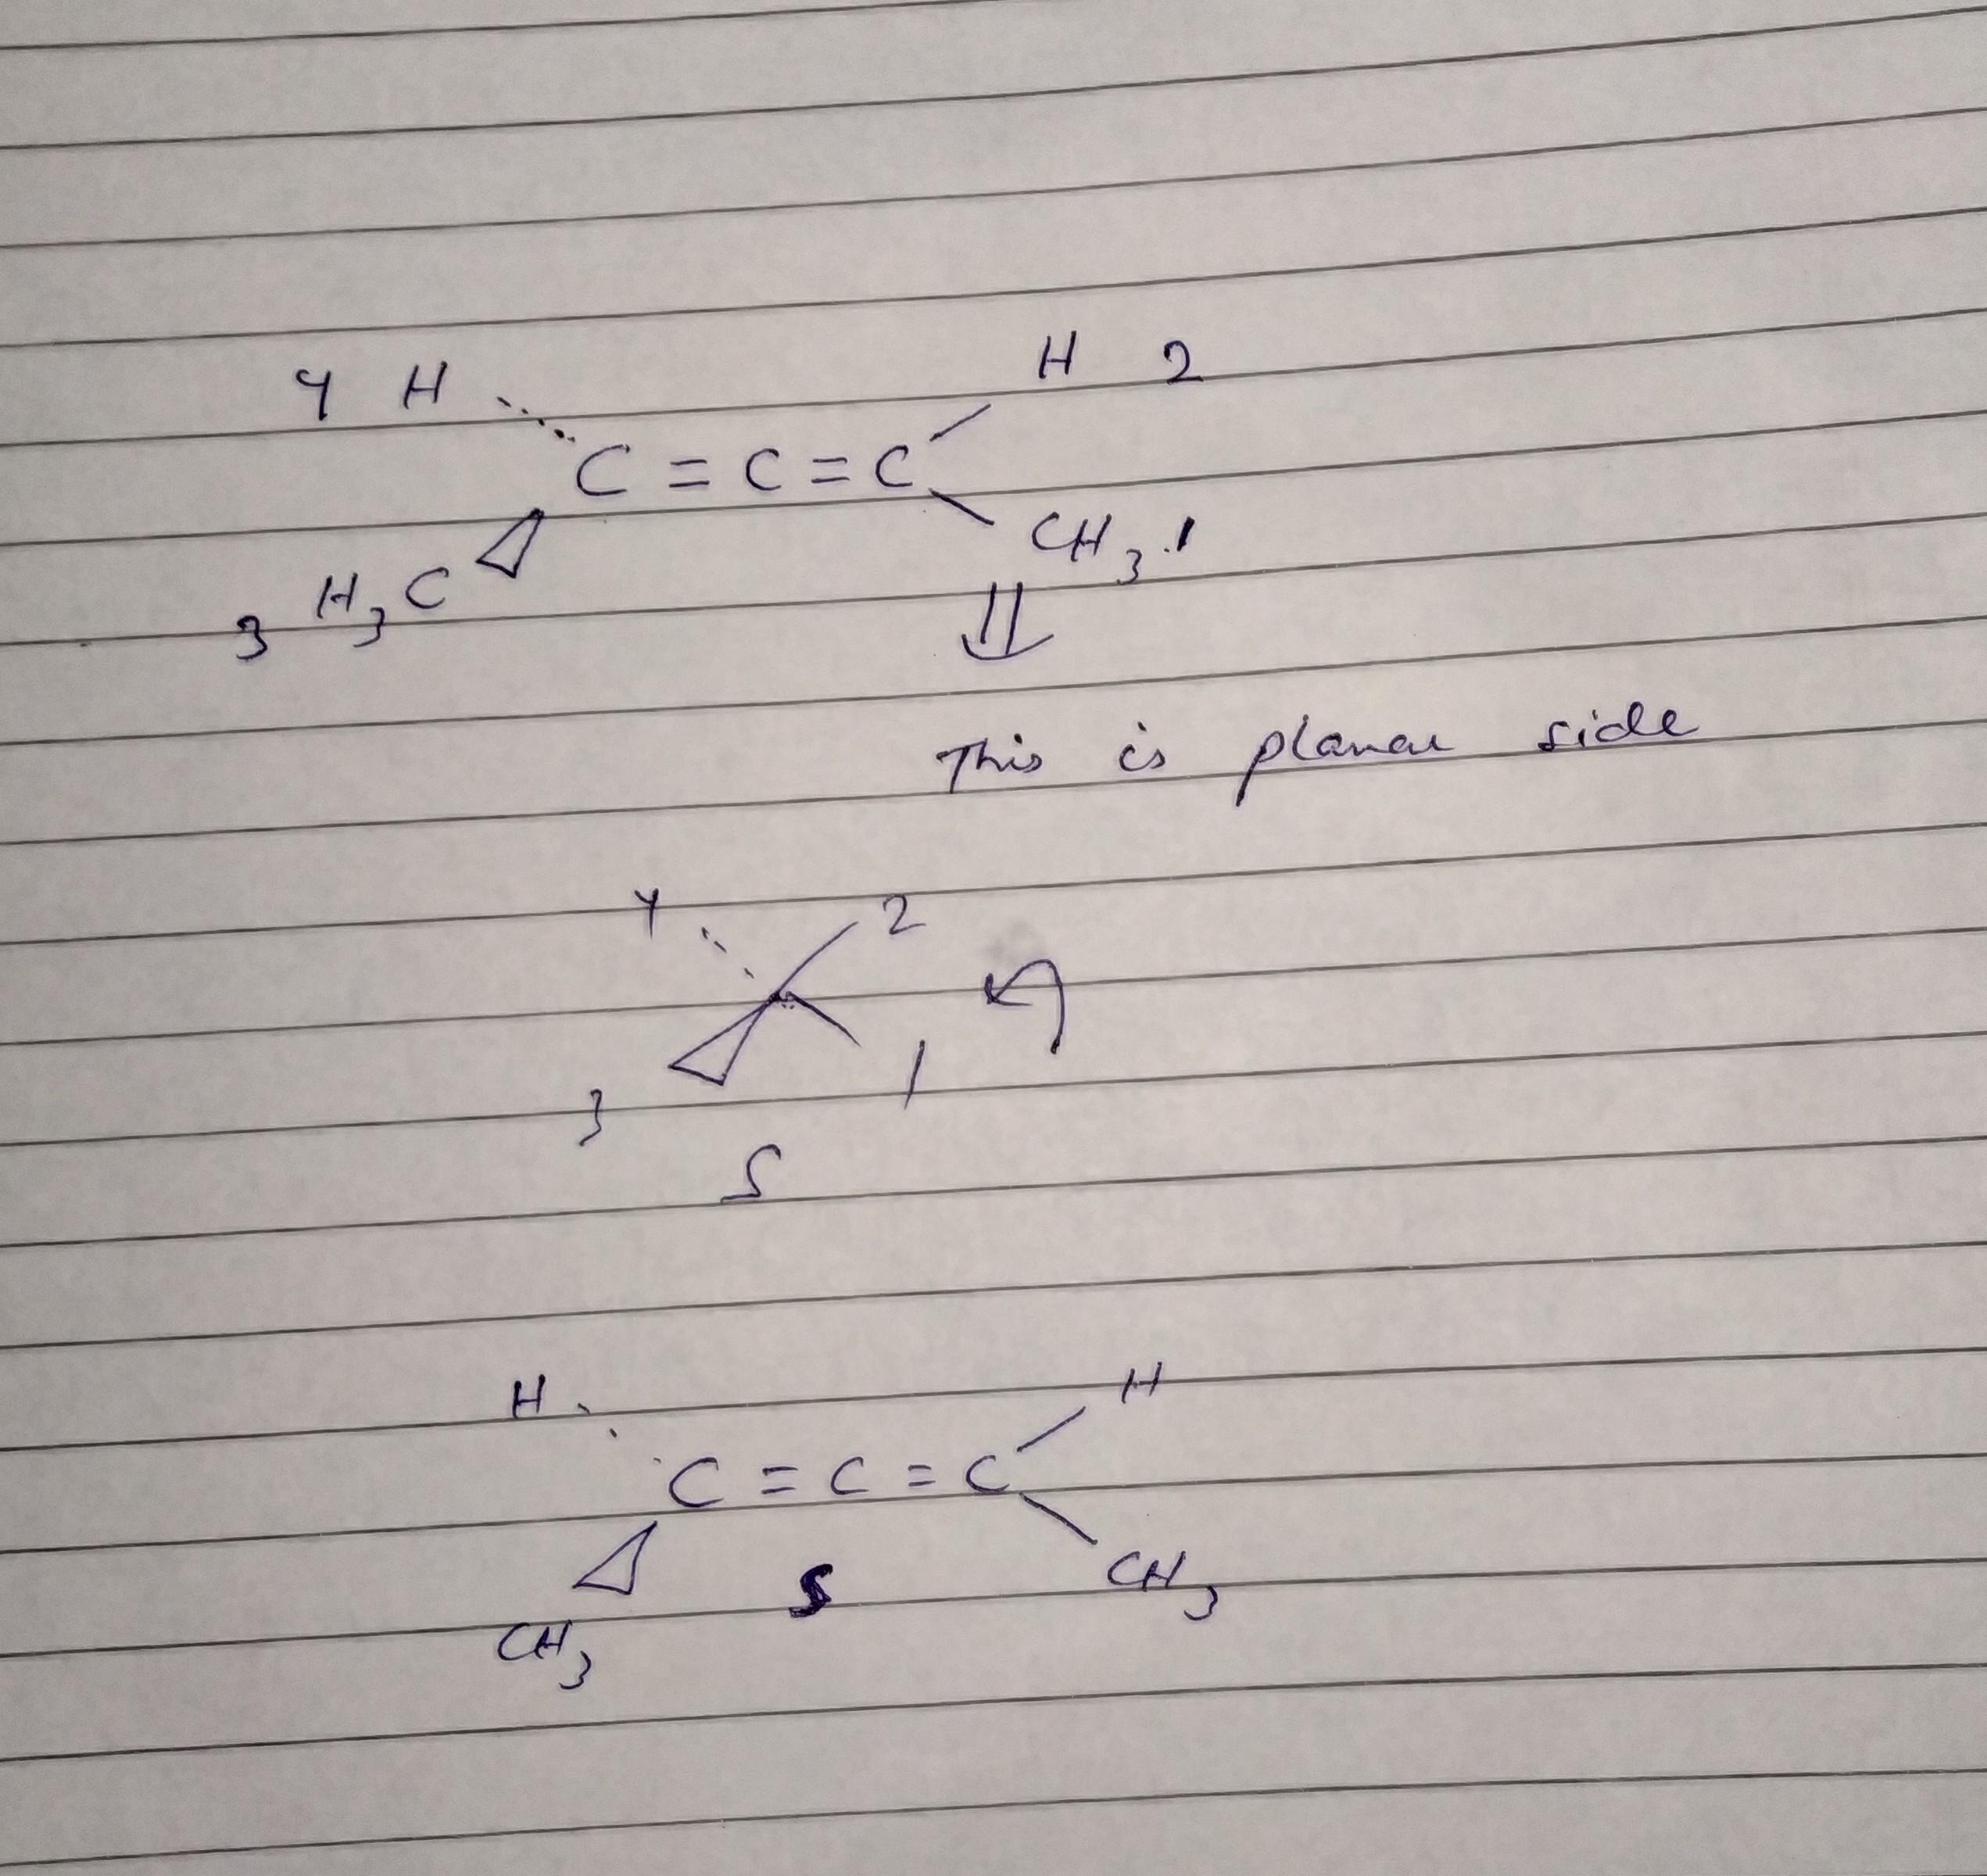 4 H H 2
C = C = C
3 H3C CH3 1
This is planar side
4 2
3 1
S
H H
C = C = C
CH3 S CH3